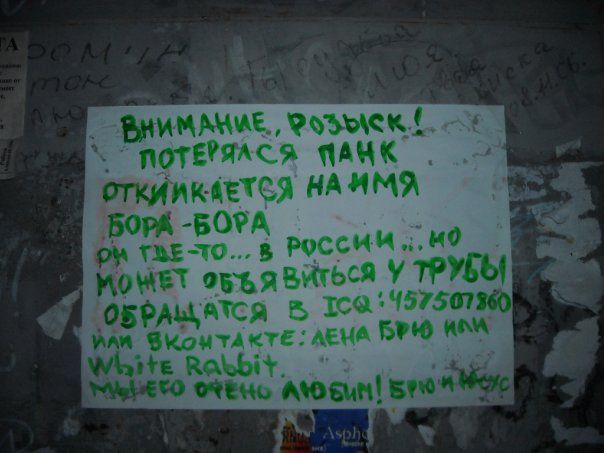 ВНИМАНИЕ, РОЗЫСК!
ПОТЕРЯЛСЯ ПАНК
ОТКИИКАЕТСЯ НА ИМЯ
БОРА-БОРА
ОН ГДЕ-ТО... В РОССИИ... НО
МОЖЕТ ОБЪЯВИТЬСЯ У ТРУБЫ
ОБРАЩАТСЯ В ICQ: 457507860
ИЛИ ВКОНТАКТЕ: ЛЕНА БРЮ ИЛИ
White Rabbit.
МЫ ЕГО ОЧЕНЬ ЛЮБИМ! БРЮ И
Aspho